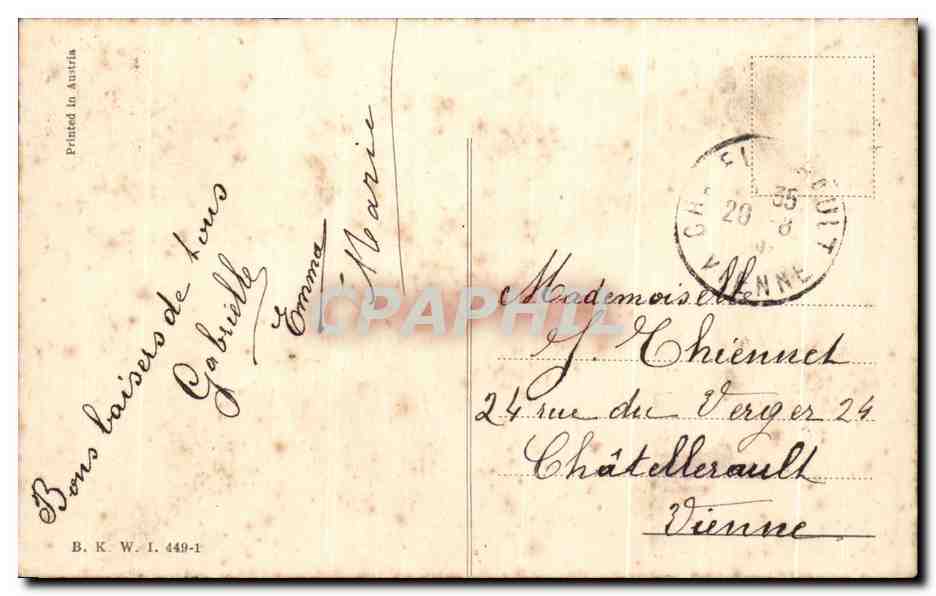 Printed in Austria
Bons baisers de tous
Gabrielle
Emma
Marie
B. K. W. I. 449-1
20 35
8
VIENNE
Mademoiselle
J. Thiennet
24 rue du Verger 24
Châtellerault
Vienne
CPAPHIL